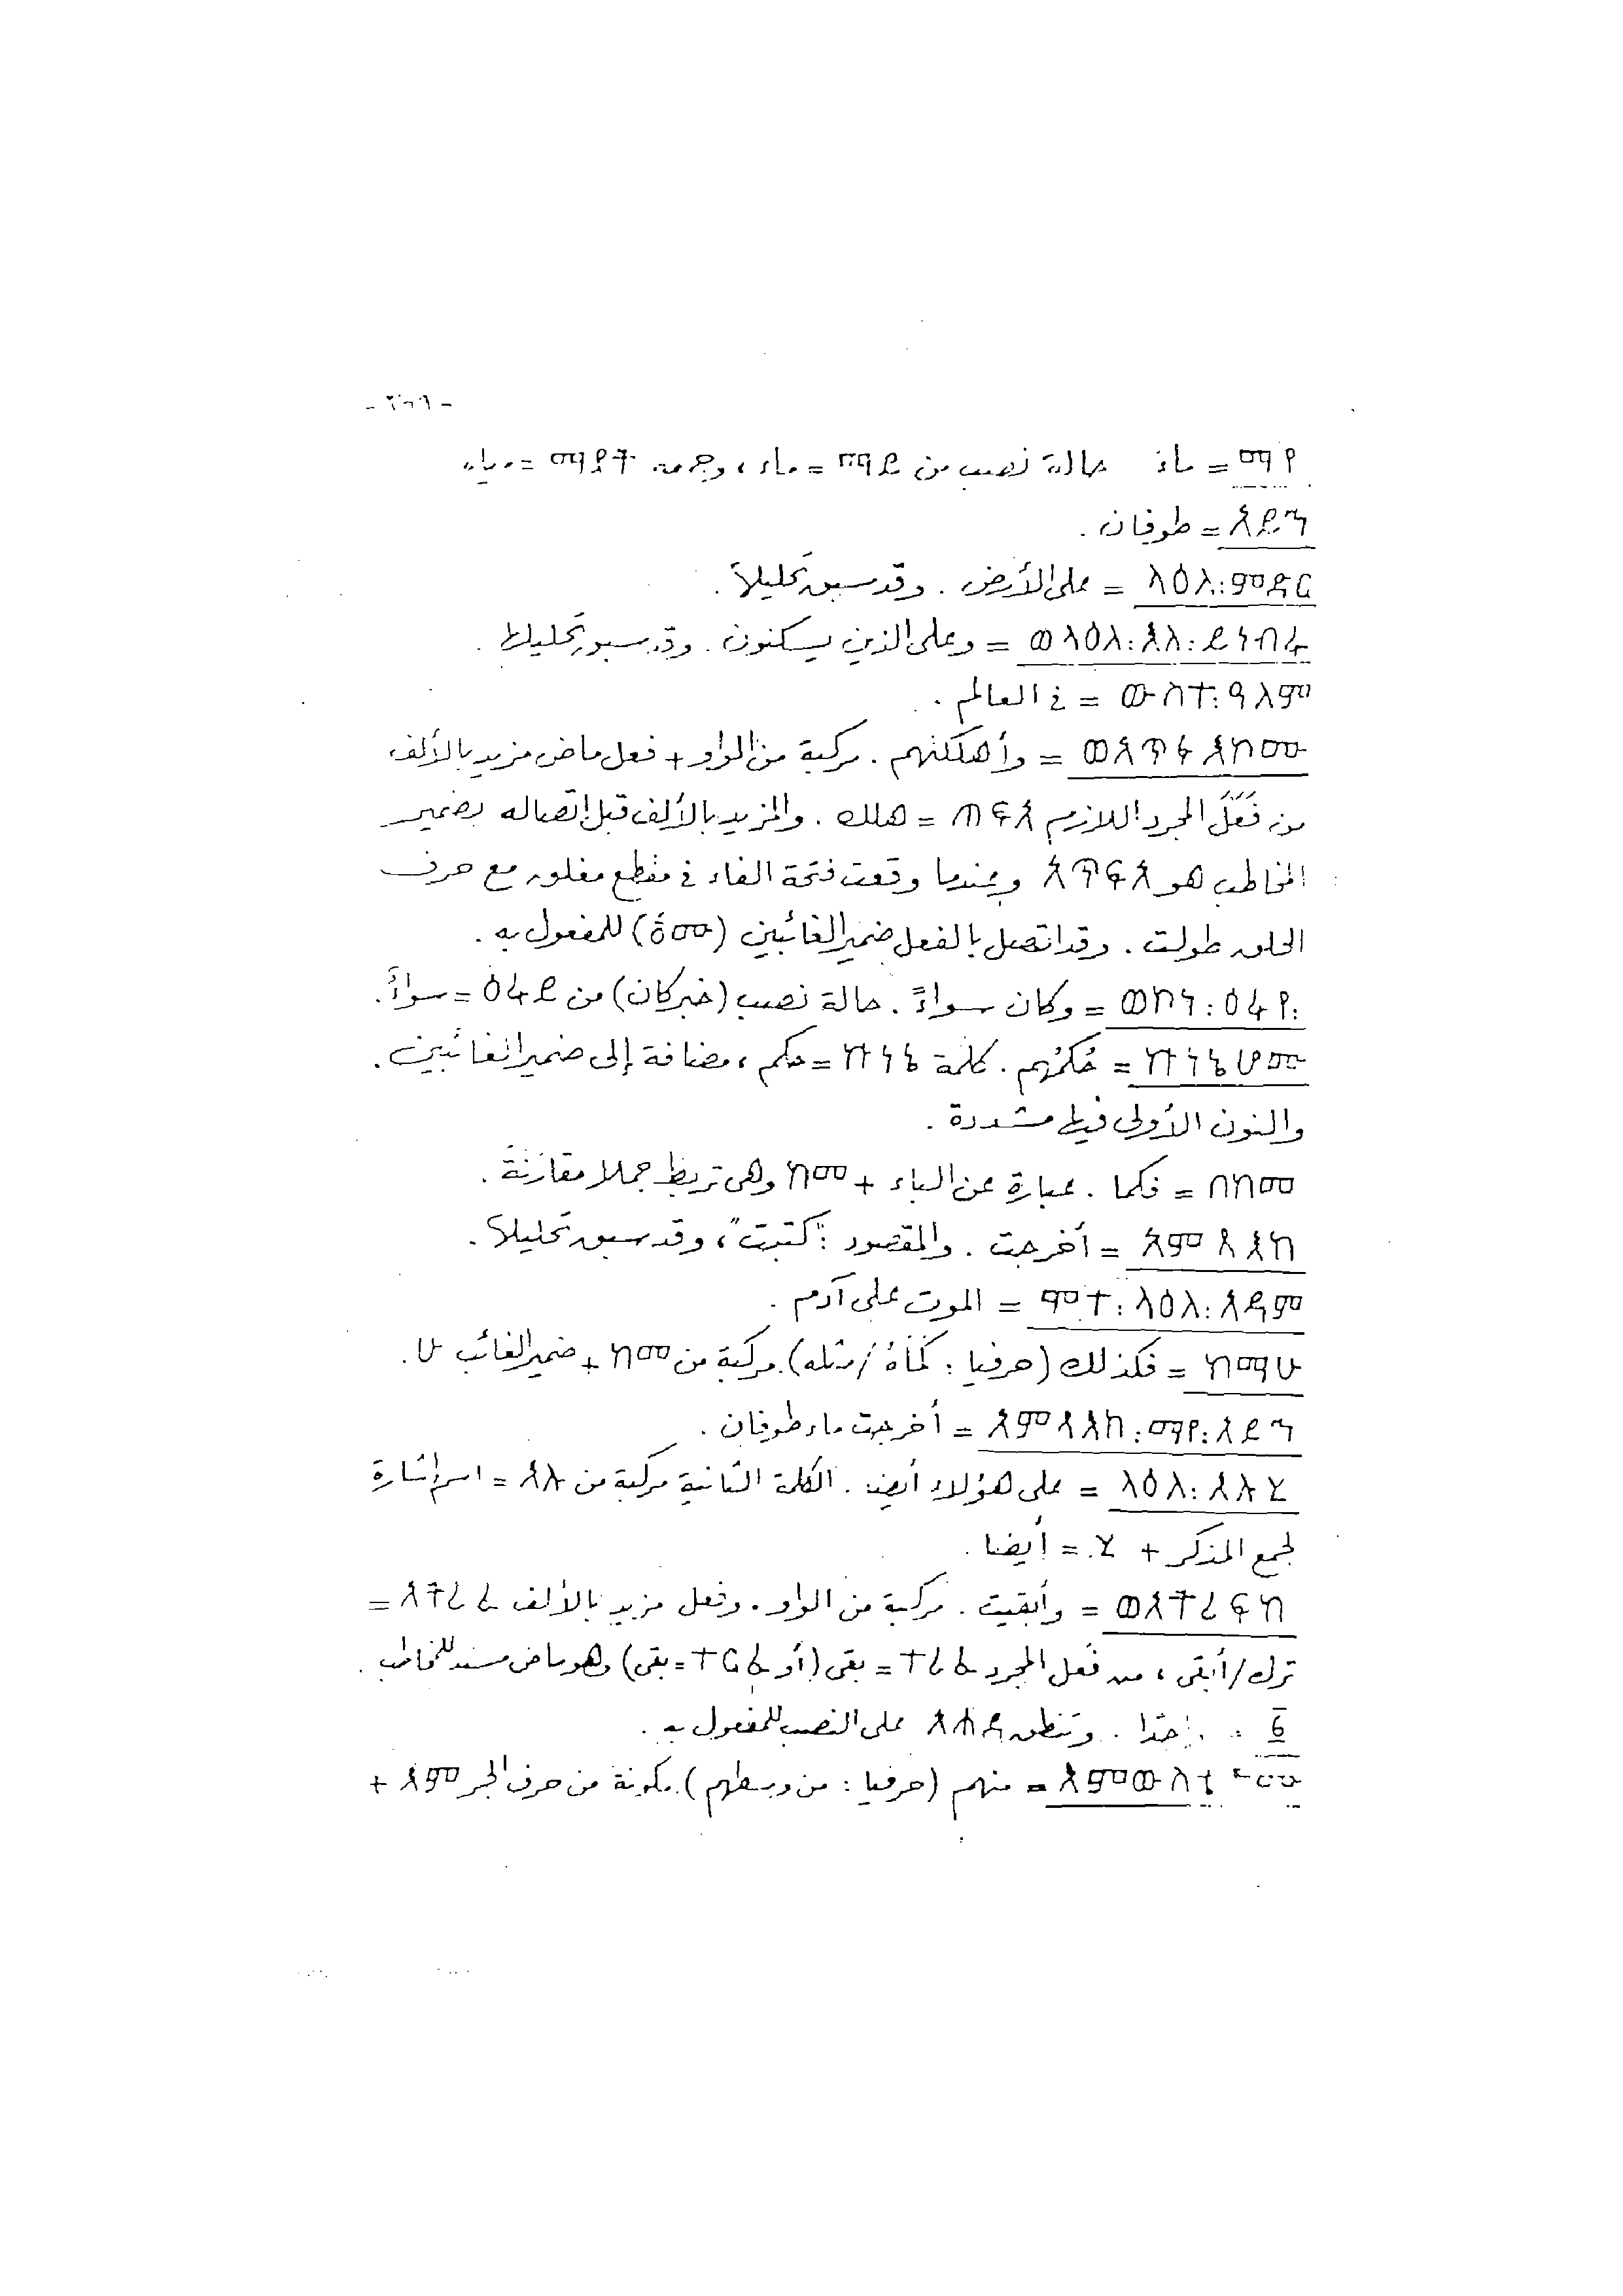 ማየ = ماءَ حالة نصب من ማይ = ماء ، وجمعه ማያት = مياه
አይኅ = طوفان .
ላዕለ፡ምድር = على الأرض . وقد سبق تحليلها .
ወላዕለ፡እለ፡ይነብሩ = وعلى الذين يسكنون . وقد سبق تحليلها .
ውስተ፡ዓለም = في العالم .
ወአጥፋእኮሙ = وأهلكتهم . مركبة من الواو + فعل ماض مزيد بالألف
من فَعَلَ المجرد اللازم ጠፍአ = هلك . والمزيد بالألف قبل إتصاله بضمير
المخاطب هو አጥፍአ وعندما وقعت فتحة الفاء في مقطع مغلق مع حرف
الحلق طولت . وقد اتصل بالفعل ضمير الغائبين (ዖሙ) للمفعول به .
ወኮነ፡ዕሩየ፡ = وكان سواءً . حالة نصب (خبر كان) من ዕሩይ = سواءً .
ኵነኔሆሙ = حُكمُهم . كلمة ኵነኔ = حكم ، مضافة إلى ضمير الغائبين .
والنون الأولى فيها مشددة .
በከመ = فكما . عبارة عن الباء + ከመ وهى تربط جملا مقارَنَة .
አምጻእከ = أخرجت . والمقصود : "كتبت" ، وقد سبق تحليلها .
ሞተ፡ላዕለ፡አዳም = الموت على آدم .
ከማሁ = فكذلك (حرفيا : كمَاهُ / مثله) . مركبة من ከመ + ضمير الغائب ሁ .
አምጻእከ፡ማየ፡አይኅ = أخرجت ماء طوفان .
ላዕለ፡እሉሂ = على هؤلاء أيضا . الكلمة الثانية مركبة من እሉ = اسم إشارة
لجمع المذكر + ሂ = أيضا .
ወአትረፍከ = وأبقيت . مركبة من الواو . وفعل مزيد بالألف አትረፈ =
ترك / أبقى ، من فعل المجرد ተረፈ = بقى (أو ተርፈ = بقى) وهو ماض مسند للمخاطب .
፩ = واحدًا . وتنطق አሐደ على النصب للمفعول به .
እምውስቴቶሙ = منهم (حرفيا : من وسطهم) . مكونة من حرف الجر እም +